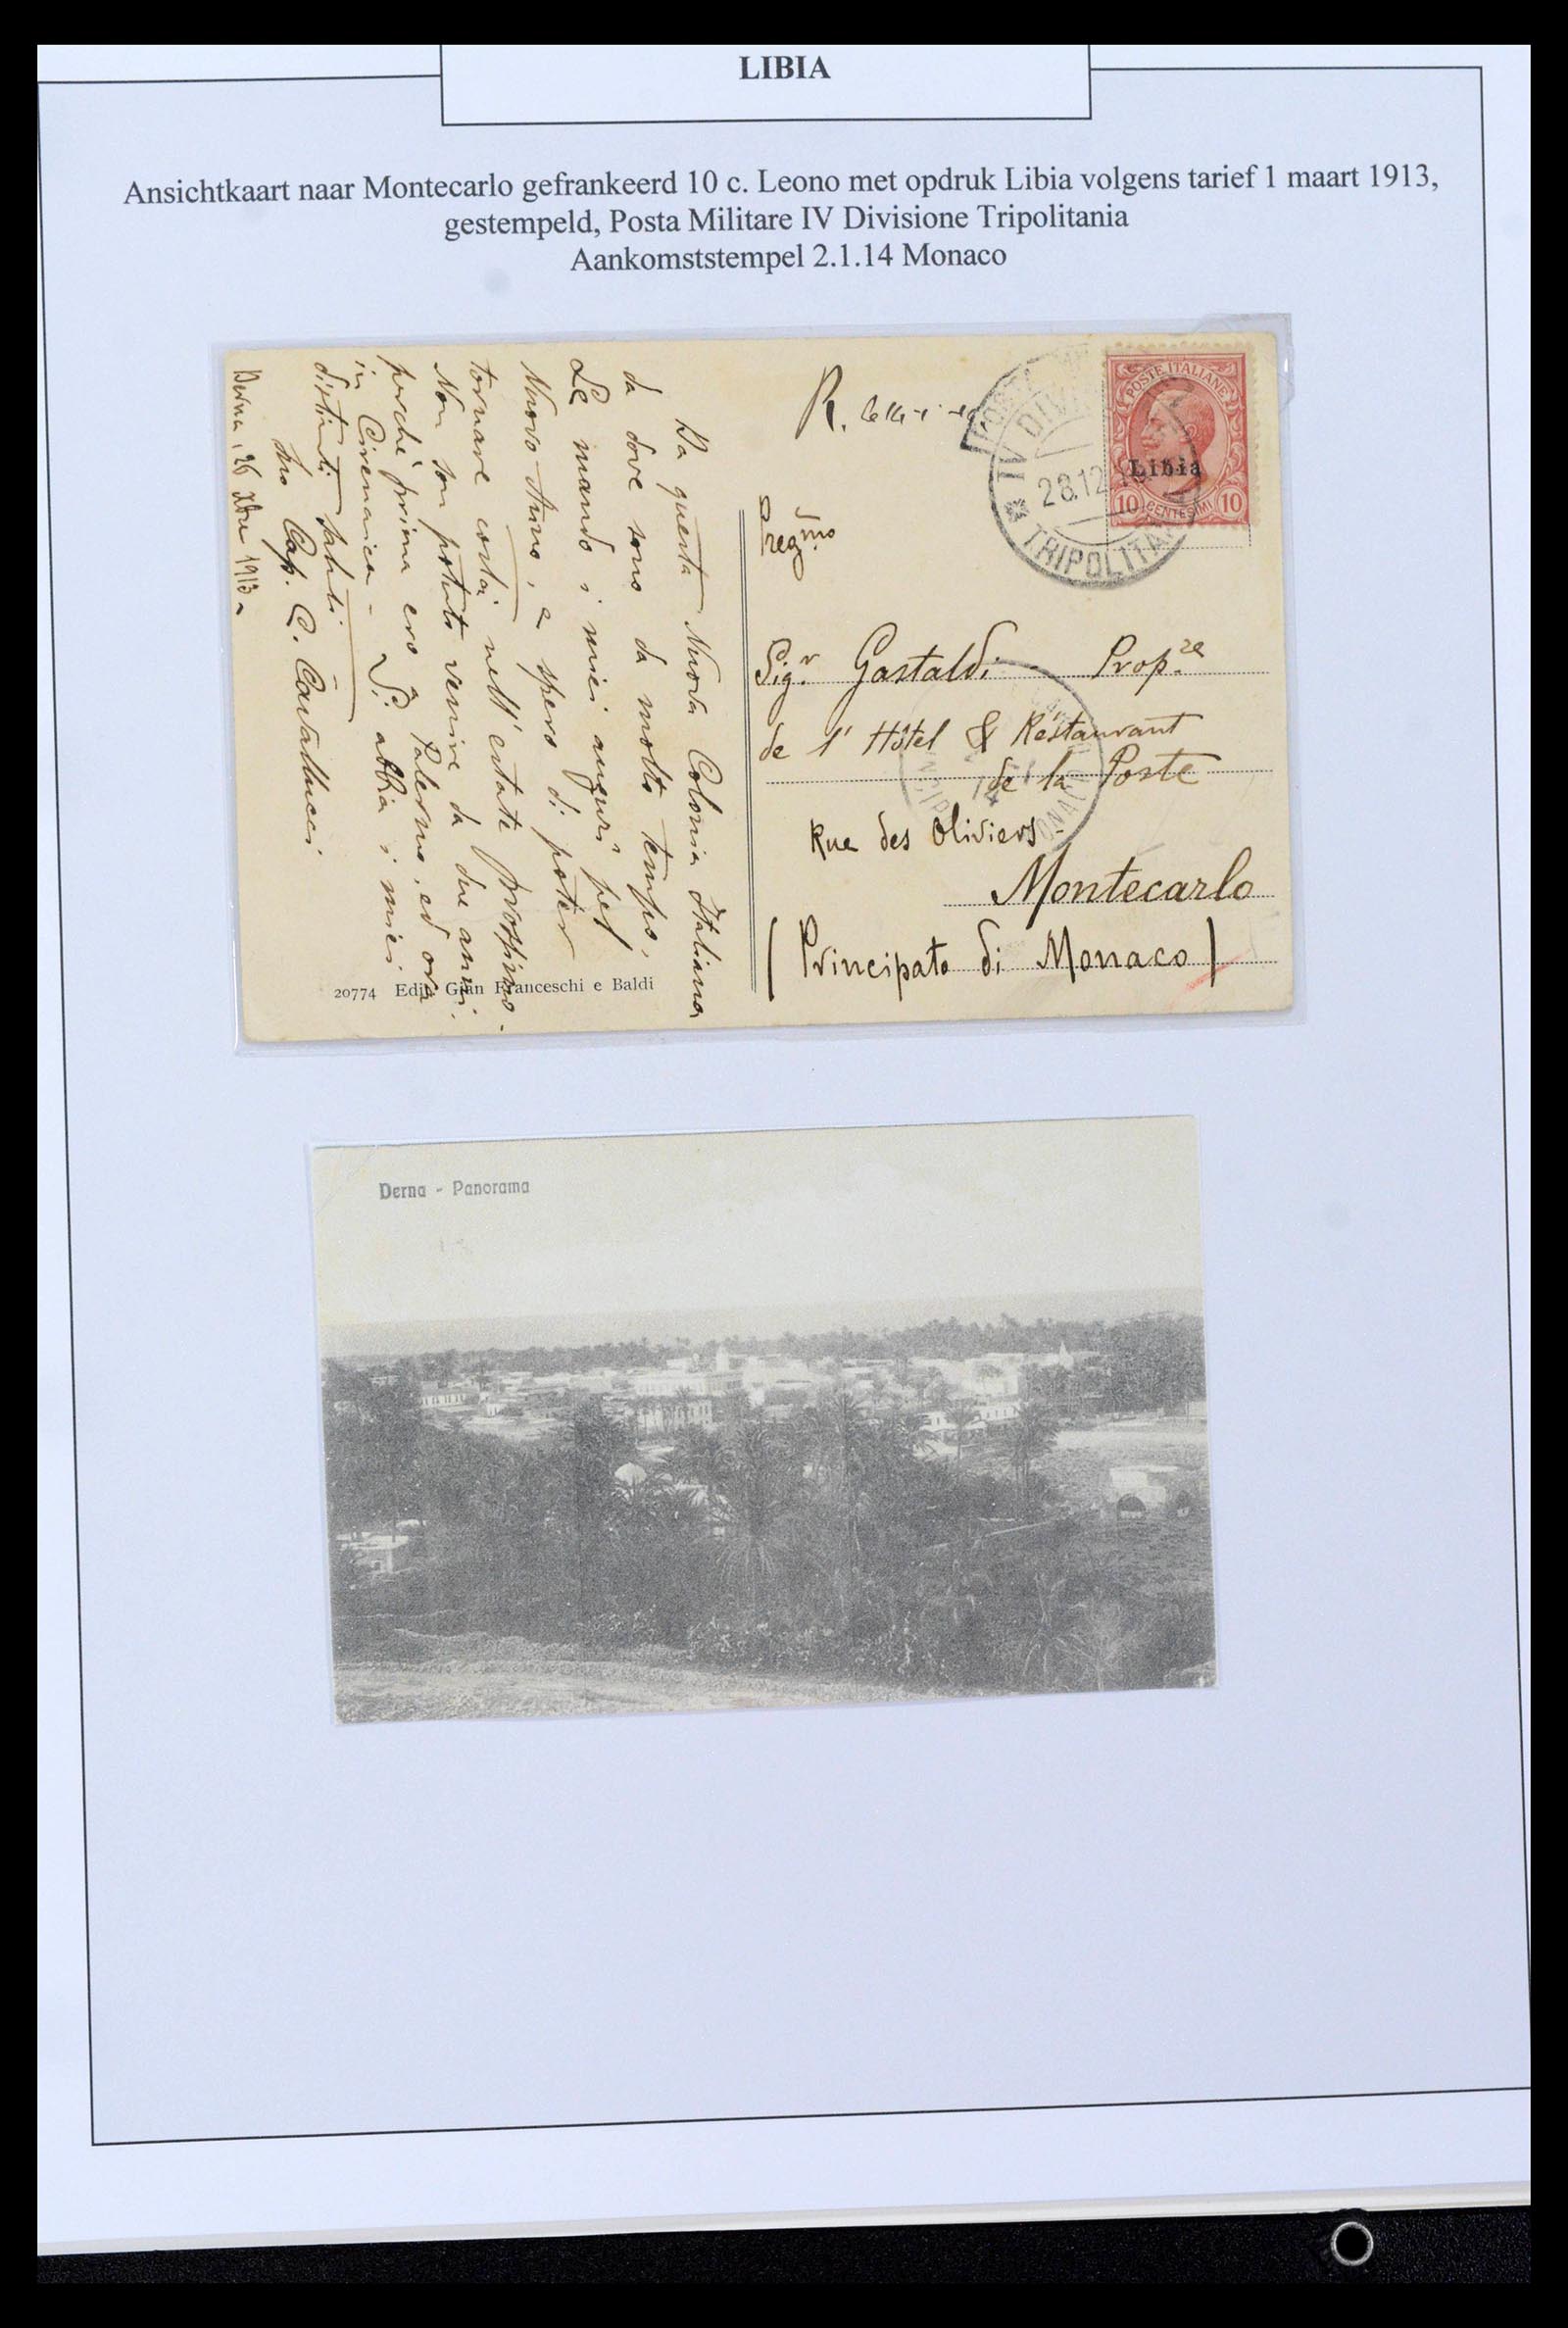 LIBIA
Ansichtkaart naar Montecarlo gefrankeerd 10 c. Leono met opdruk Libia volgens tarief 1 maart 1913,
gestempeld, Posta Militare IV Divisione Tripolitania
Aankomststempel 2.1.14 Monaco
Da questa Nuova Colonia Italiana
da dove sono da molto tempo,
Le mando i miei auguri pel
Nuovo Anno, e spero di poter
tornare costì nell'estate prossimo.
Non son potuto venire da due anni
perché prima ero a Palermo, ed ora
in Cirenaica - Si abbia i miei
distinti saluti
Suo Cap. C. Cavallucci
Derna, 26 Xbre 1913 -
20774 Edit. Gian Franceschi e Baldi
R.
POSTE ITALIANE
Libia
10 CENTESIMI 10
IV DIV
28.12
TRIPOLITA
Preg.mo
Sig.r Gastaldi Prop.re
de l'Hôtel & Réstaurant
de la Poste
Rue des Oliviers
Montecarlo
(Principato di Monaco)
Derna - Panorama